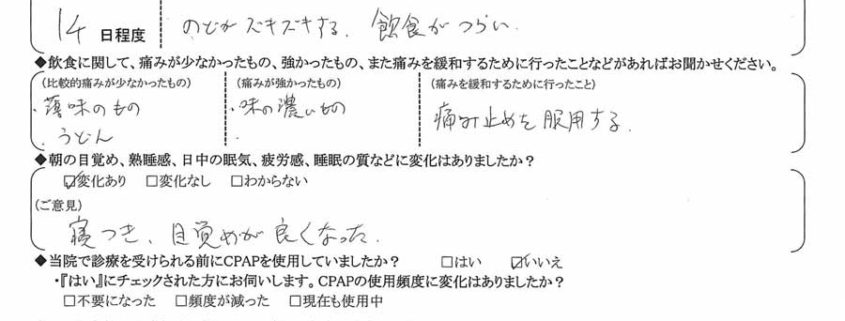 14 日程度 のどがズキズキする、飲食がつらい
◆飲食に関して、痛みが少なかったもの、強かったもの、また痛みを緩和するために行ったことなどがあればお聞かせください。
(比較的痛みが少なかったもの) (痛みが強かったもの) (痛みを緩和するために行ったこと)
・薄味のもの ・味の濃いもの 痛み止めを服用する.
・うどん ・
◆朝の目覚め、熟睡感、日中の眠気、疲労感、睡眠の質などに変化はありましたか?
☑変化あり □変化なし □わからない
(ご意見)
寝つき、目覚めが良くなった.
◆当院で診療を受けられる前にCPAPを使用していましたか? □はい ☑いいえ
・『はい』にチェックされた方にお伺いします。CPAPの使用頻度に変化はありましたか?
□不要になった □頻度が減った □現在も使用中